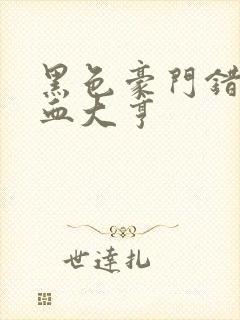 黑色豪門錯
血大亨
世達扎